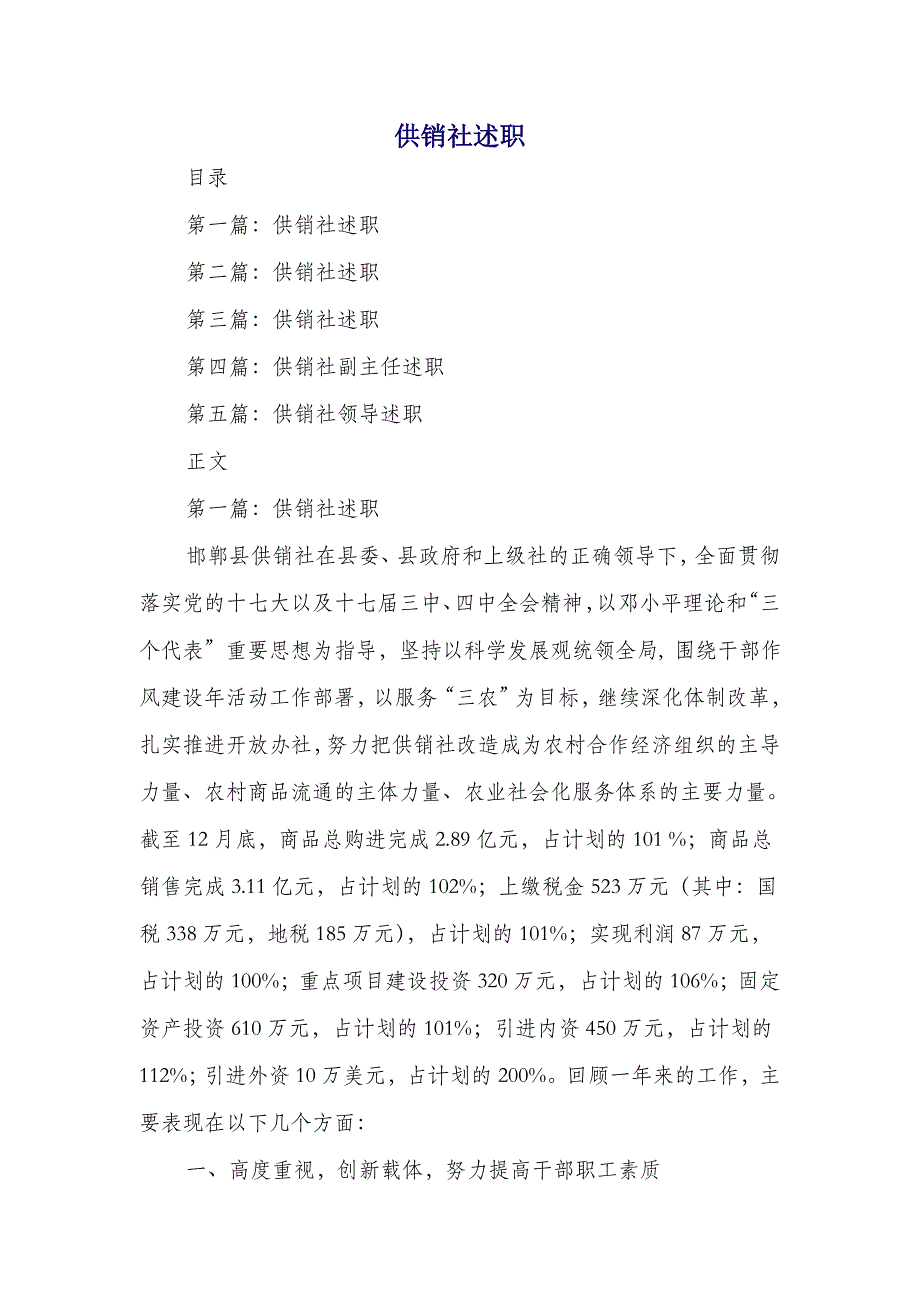 供销社述职
目录
第一篇：供销社述职
第二篇：供销社述职
第三篇：供销社述职
第四篇：供销社副主任述职
第五篇：供销社领导述职
正文
第一篇：供销社述职
邯郸县供销社在县委、县政府和上级社的正确领导下，全面贯彻
落实党的十七大以及十七届三中、四中全会精神，以邓小平理论和“三
个代表”重要思想为指导，坚持以科学发展观统领全局，围绕干部作
风建设年活动工作部署，以服务“三农”为目标，继续深化体制改革，
扎实推进开放办社，努力把供销社改造成为农村合作经济组织的主导
力量、农村商品流通的主体力量、农业社会化服务体系的主要力量。
截至 12 月底，商品总购进完成 2.89 亿元，占计划的 101 %；商品总
销售完成 3.11 亿元，占计划的 102%；上缴税金 523 万元（其中：国
税 338 万元，地税 185 万元），占计划的 101%；实现利润 87 万元，
占计划的 100%；重点项目建设投资 320 万元，占计划的 106%；固定
资产投资 610 万元，占计划的 101%；引进内资 450 万元，占计划的
112%；引进外资 10 万美元，占计划的 200%。回顾一年来的工作，主
要表现在以下几个方面：
一、高度重视，创新载体，努力提高干部职工素质